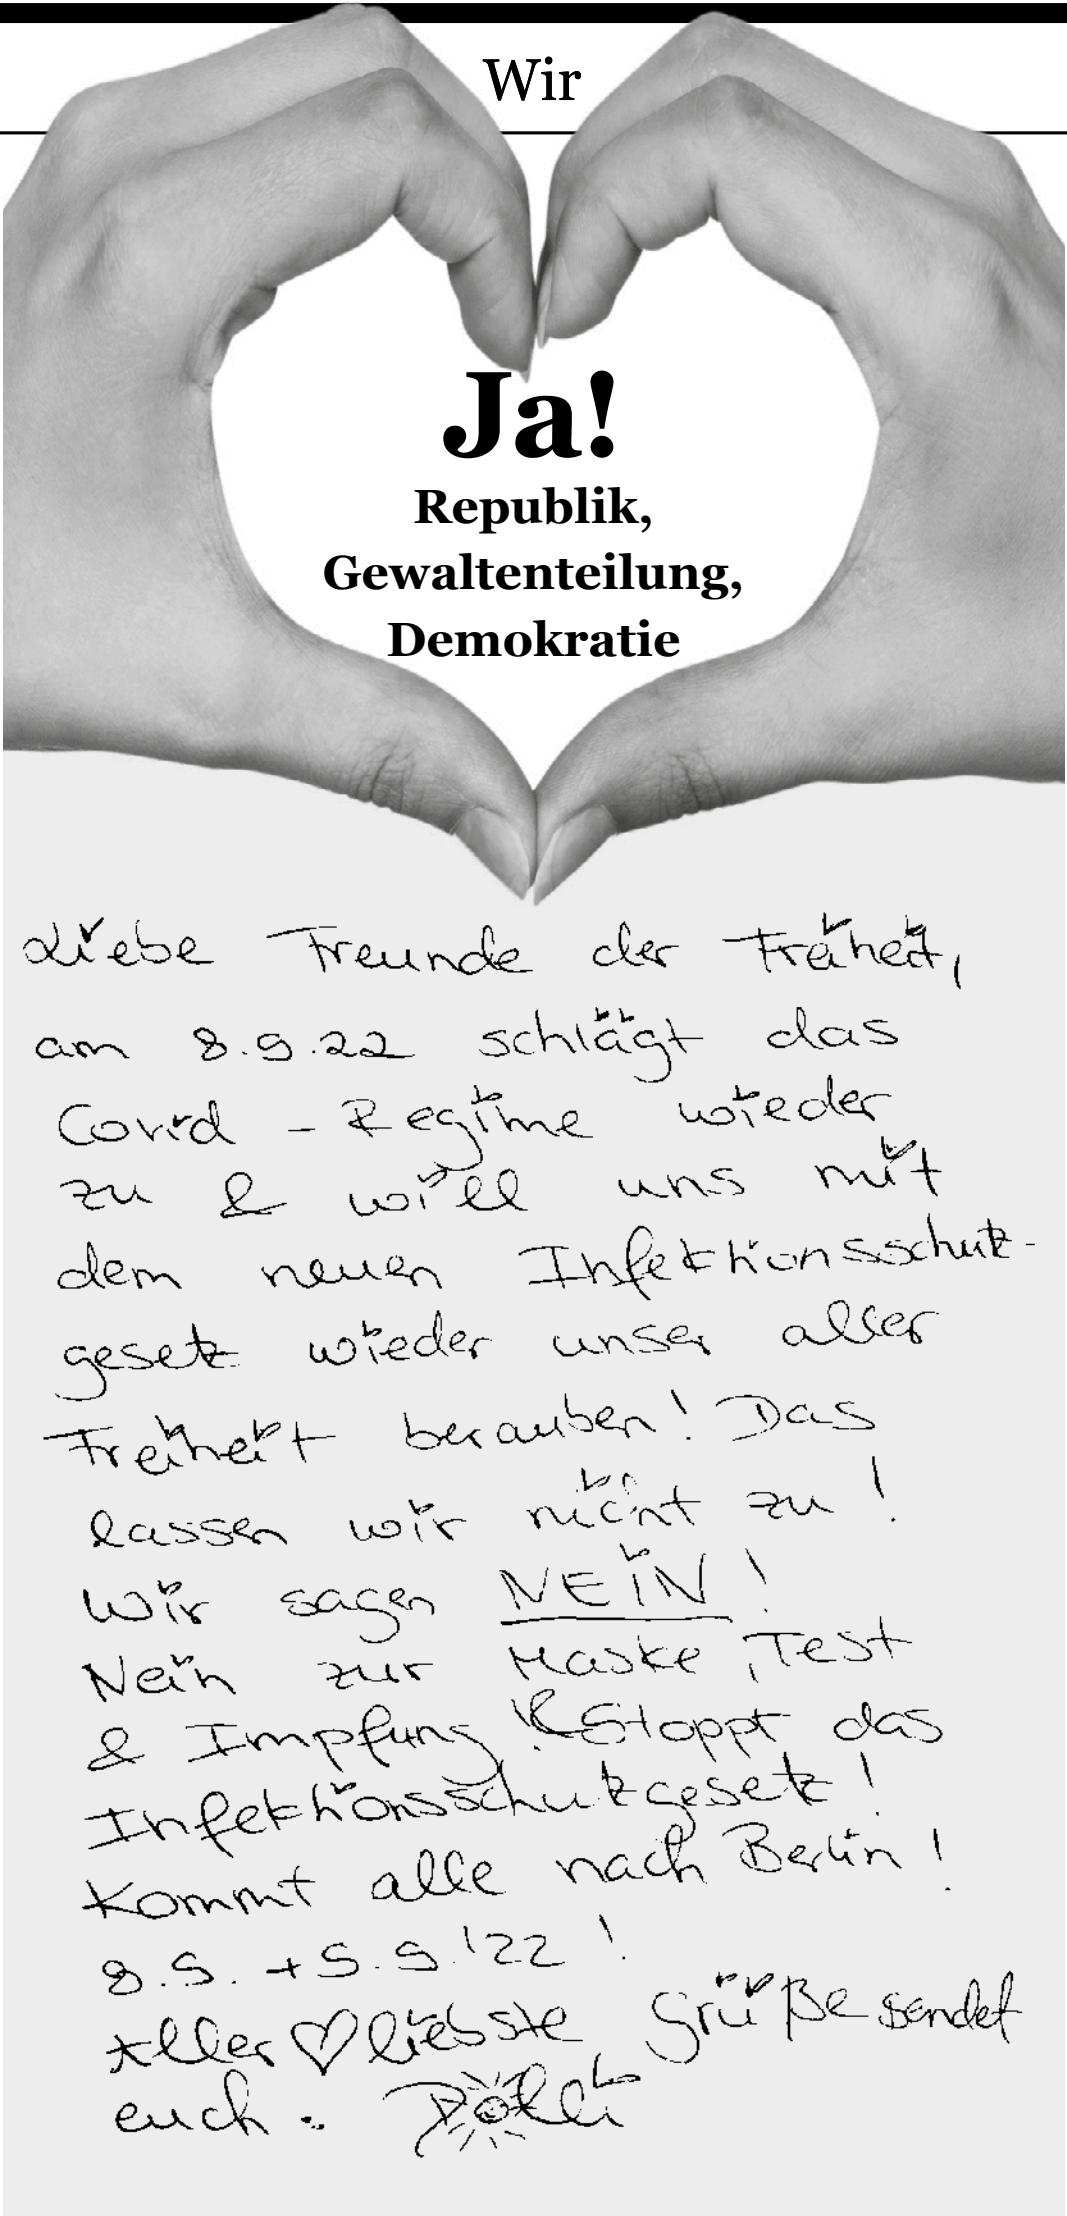 Wir
Ja!
Republik,
Gewaltenteilung,
Demokratie
Liebe Freunde der Freiheit,
am 8.9.22 schlägt das
Covid - Regime wieder
zu & will uns mit
dem neuen Infektionsschutz-
gesetz wieder unser aller
Freiheit berauben! Das
lassen wir nicht zu!
Wir sagen NEIN!
Nein zur Maske, Test
& Impfung! Stoppt das
Infektionsschutzgesetz!
Kommt alle nach Berlin!
8.9. + 9.9.'22!
Aller♡liebste Grüße sendet
euch: Dolli